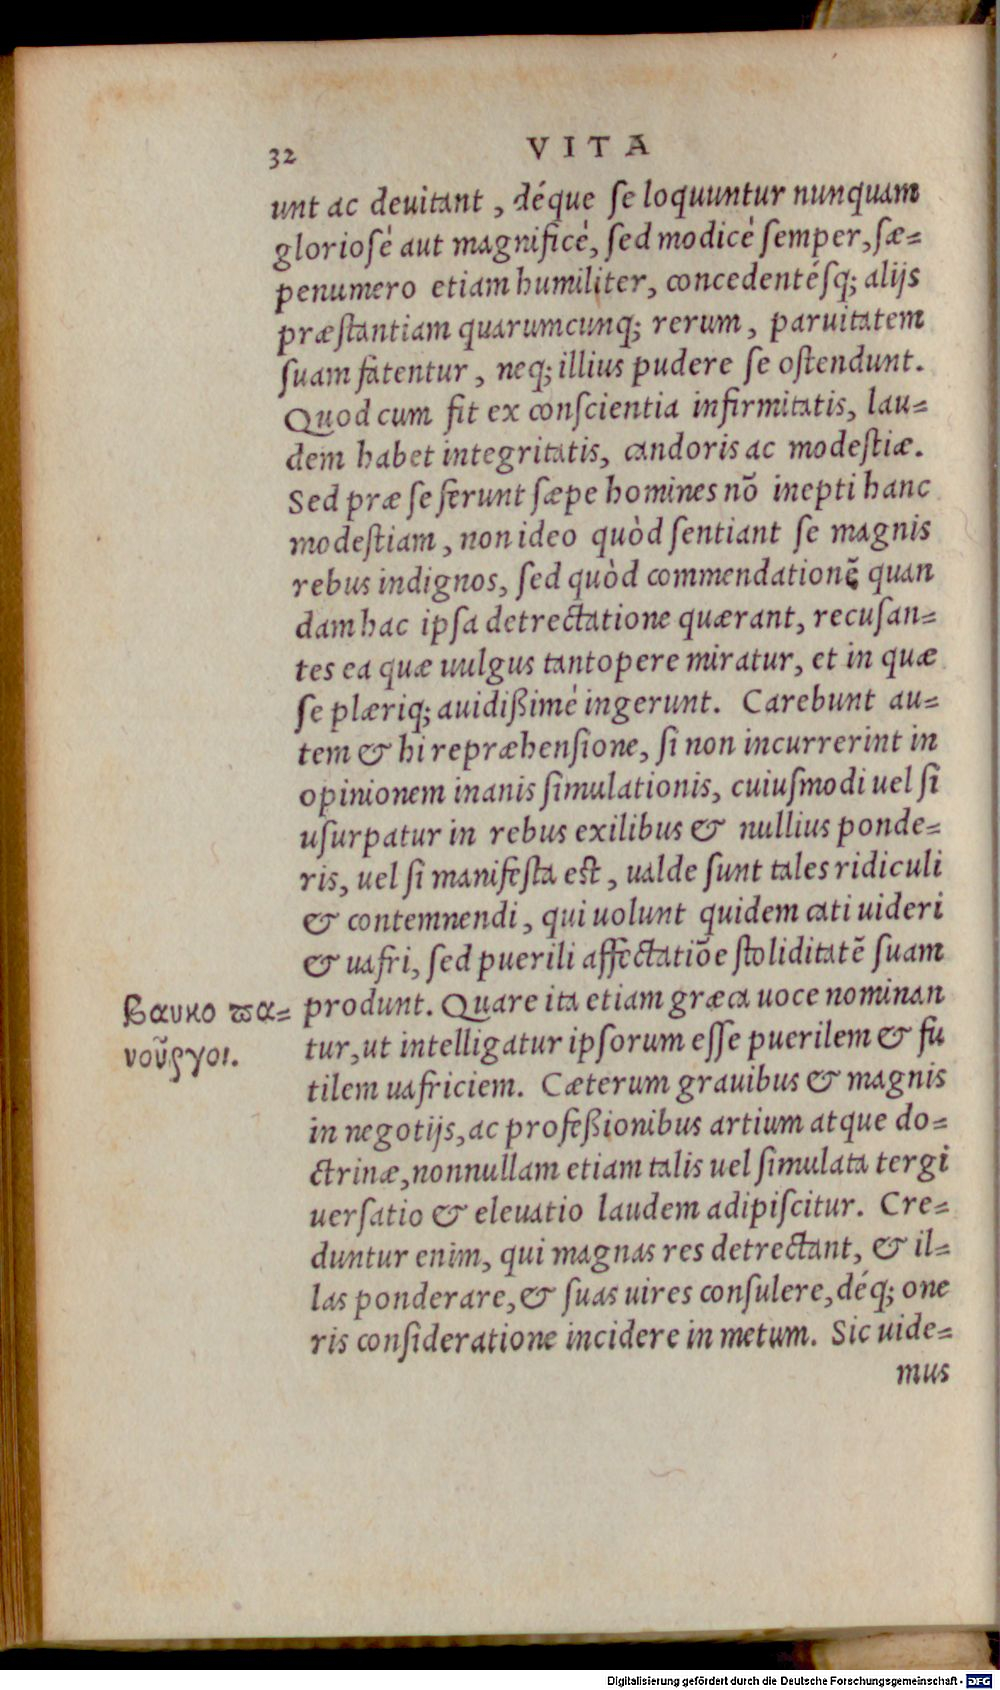 32 VITA
unt ac deuitant, déque se loquuntur nunquam
gloriosè aut magnificè, sed modicè semper, sæ=
penumero etiam humiliter, concedentésq; alijs
præstantiam quarumcunq; rerum, paruitatem
suam fatentur, neq; illius pudere se ostendunt.
Quod cum fit ex conscientia infirmitatis, lau=
dem habet integritatis, candoris ac modestiæ.
Sed præ se ferunt sæpe homines nō inepti hanc
modestiam, non ideo quòd sentiant se magnis
rebus indignos, sed quòd commendationē quan
dam hac ipsa detrectatione quærant, recusan=
tes ea quæ uulgus tantopere miratur, et in quæ
se plæriq; auidißimè ingerunt. Carebunt au=
tem & hi repræhensione, si non incurrerint in
opinionem inanis simulationis, cuiusmodi uel si
usurpatur in rebus exilibus & nullius ponde=
ris, uel si manifesta est, ualde sunt tales ridiculi
& contemnendi, qui uolunt quidem cati uideri
& uafri, sed puerili affectatiōe stoliditatē suam
βαυκο ϖα= produnt. Quare ita etiam græca uoce nominan
νοῦργοι. tur, ut intelligatur ipsorum esse puerilem & fu
tilem uafriciem. Cæterum grauibus & magnis
in negotijs, ac profeßionibus artium atque do=
ctrinæ, nonnullam etiam talis uel simulata tergi
uersatio & eleuatio laudem adipiscitur. Cre=
duntur enim, qui magnas res detrectant, & il=
las ponderare, & suas uires consulere, déq; one
ris consideratione incidere in metum. Sic uide=
mus
Digitalisierung gefördert durch die Deutsche Forschungsgemeinschaft - DFG